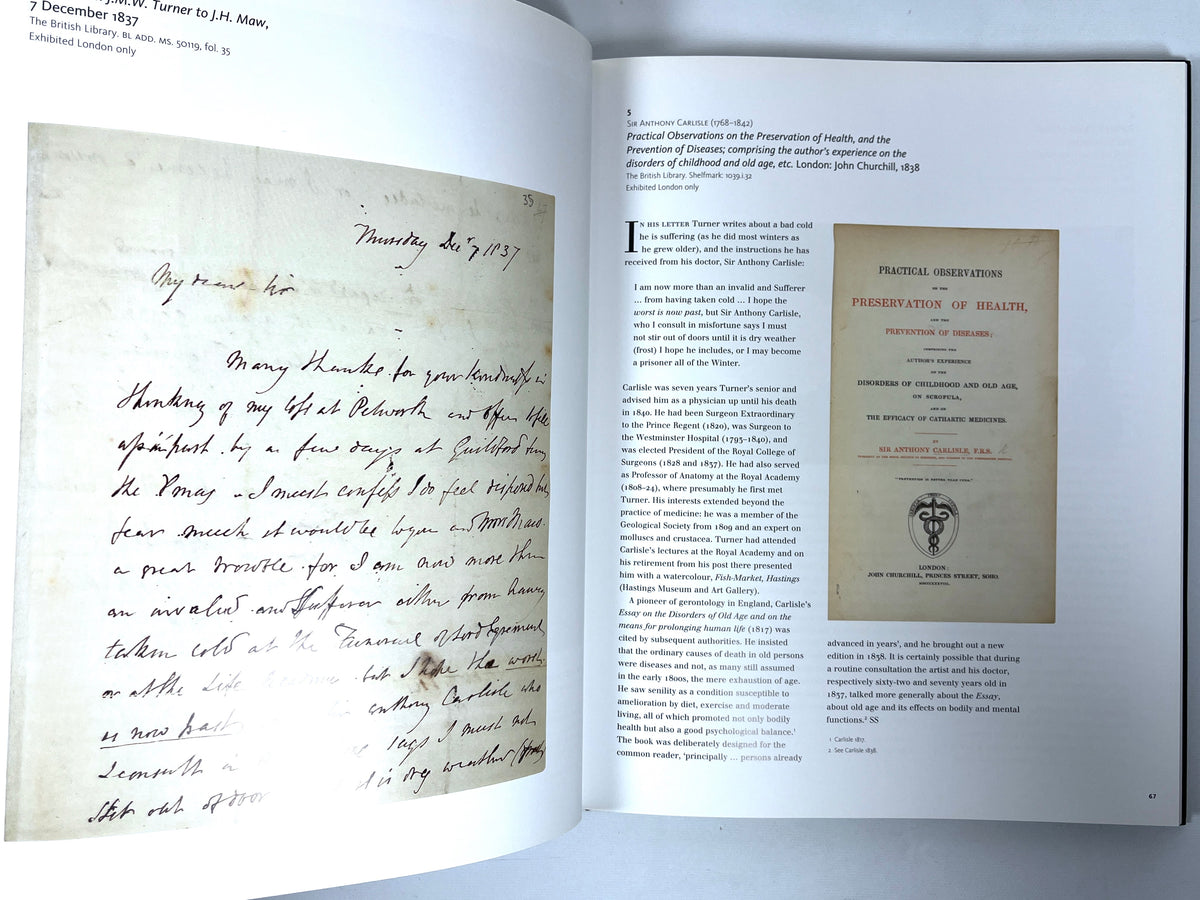 J.M.W. Turner to J.H. Maw,
7 December 1837
The British Library. BL ADD. MS. 50119, fol. 35
Exhibited London only
35
Thursday Decr 7 1837
My dear Sir
Many thanks for your kindness in
thinking of my loss at Petworth and offer to fill
up in part by a few days at Guildford
the Xmas I must confess I do feel disposed but
fear much it would be to you and
a great trouble for I am now more than
an invalid and Sufferer either from having
taken cold at the Funeral of Lord Egremont
or at the Life but I hope the worst
is now past Anthony Carlisle who
I consult says I must not
Stir out of door it is dry weather
5
SIR ANTHONY CARLISLE (1768–1842)
Practical Observations on the Preservation of Health, and the
Prevention of Diseases; comprising the author's experience on the
disorders of childhood and old age, etc. London: John Churchill, 1838
The British Library. Shelfmark: 1039.i.32
Exhibited London only
IN HIS LETTER Turner writes about a bad cold
he is suffering (as he did most winters as
he grew older), and the instructions he has
received from his doctor, Sir Anthony Carlisle:
I am now more than an invalid and Sufferer
... from having taken cold ... I hope the
worst is now past, but Sir Anthony Carlisle,
who I consult in misfortune says I must
not stir out of doors until it is dry weather
(frost) I hope he includes, or I may become
a prisoner all of the Winter.
Carlisle was seven years Turner's senior and
advised him as a physician up until his death
in 1840. He had been Surgeon Extraordinary
to the Prince Regent (1820), was Surgeon to
the Westminster Hospital (1793–1840), and
was elected President of the Royal College of
Surgeons (1828 and 1837). He had also served
as Professor of Anatomy at the Royal Academy
(1808–24), where presumably he first met
Turner. His interests extended beyond the
practice of medicine: he was a member of the
Geological Society from 1809 and an expert on
molluscs and crustacea. Turner had attended
Carlisle's lectures at the Royal Academy and on
his retirement from his post there presented
him with a watercolour, Fish-Market, Hastings
(Hastings Museum and Art Gallery).
A pioneer of gerontology in England, Carlisle's
Essay on the Disorders of Old Age and on the
means for prolonging human life (1817) was
cited by subsequent authorities. He insisted
that the ordinary causes of death in old persons
were diseases and not, as many still assumed
in the early 1800s, the mere exhaustion of age.
He saw senility as a condition susceptible to
amelioration by diet, exercise and moderate
living, all of which promoted not only bodily
health but also a good psychological balance.¹
The book was deliberately designed for the
common reader, 'principally ... persons already
PRACTICAL OBSERVATIONS
ON THE
PRESERVATION OF HEALTH,
AND THE
PREVENTION OF DISEASES;
COMPRISING THE
AUTHOR'S EXPERIENCE
ON THE
DISORDERS OF CHILDHOOD AND OLD AGE,
ON SCROFULA,
AND ON
THE EFFICACY OF CATHARTIC MEDICINES.
BY
SIR ANTHONY CARLISLE, F.R.S.
"PREVENTION IS BETTER THAN CURE."
LONDON:
JOHN CHURCHILL, PRINCES STREET, SOHO.
MDCCCXXXVIII.
advanced in years', and he brought out a new
edition in 1838. It is certainly possible that during
a routine consultation the artist and his doctor,
respectively sixty-two and seventy years old in
1837, talked more generally about the Essay,
about old age and its effects on bodily and mental
functions.² SS
1 Carlisle 1817.
2. See Carlisle 1838.
67